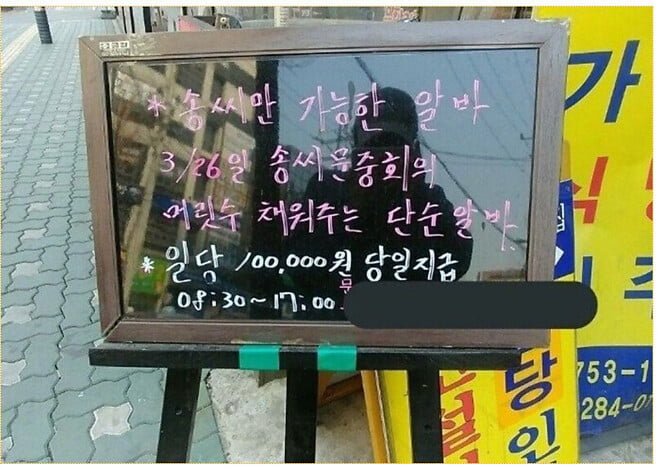 * 송씨만 가능한 알바
3/26일 송씨문중회의
머릿수 채워주는 단순알바.
* 일당 100,000원 당일지급
08:30~17:00
문
가
식
주
당
인
753-1
284-0